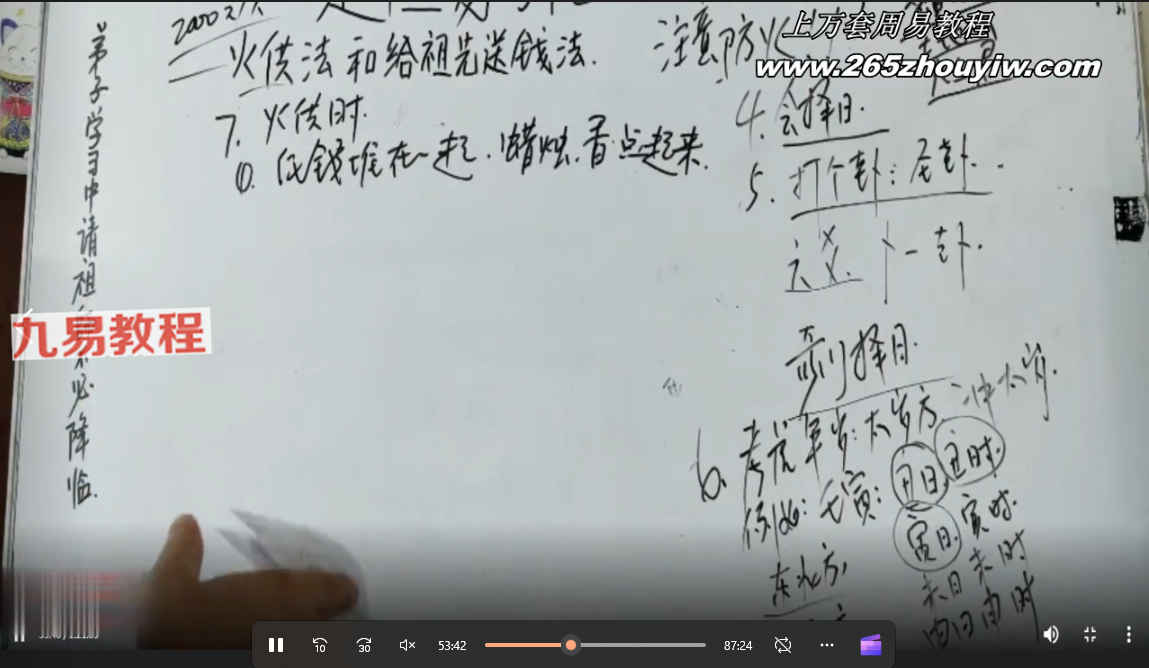 上万套周易教程
www.265zhouyiw.com
火供法和给祖先送钱法.
注意防火
7. 火供时.
①. 纸钱堆在一起.蜡烛.香点起来.
4. 会择日.
5. 打个卦:圣卦.
六爻.卜一卦.
奇门择日.
6. 考虑年岁:太岁方.冲太岁.
例如:壬寅:丑日.丑时.
寅日.寅时.
东北方,
未日未时
申日申时
弟子学习中请祖
必降临.
九易教程
10
30
53:42
87:24